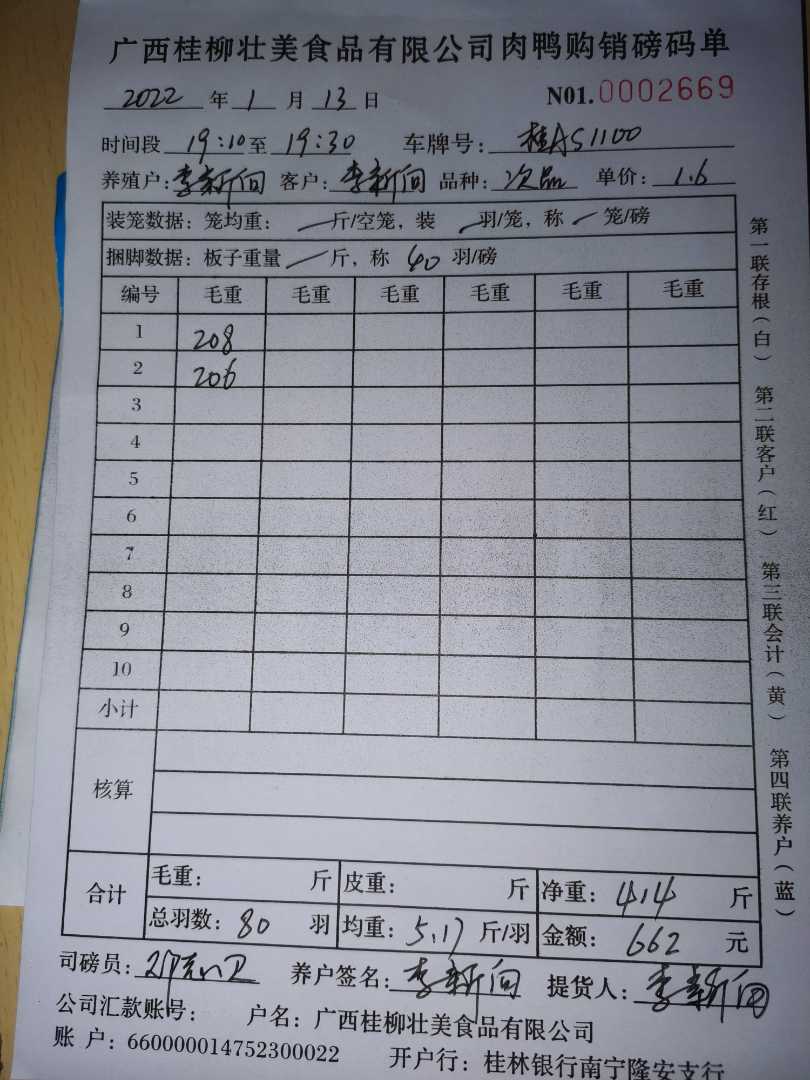 广西桂柳壮美食品有限公司肉鸭购销磅码单
2022 年 1 月 13 日 N01.0002669
时间段 19:10 至 19:30 车牌号: 桂AS1100
养殖户: 李新闻 客户: 李新闻 品种: 次品 单价: 1.6
装笼数据: 笼均重: 斤/空笼, 装 羽/笼, 称 笼/磅
捆脚数据: 板子重量 斤, 称 40 羽/磅
编号 毛重 毛重 毛重 毛重 毛重 毛重
1 208
2 206
3
4
5
6
7
8
9
10
小计
核算
合计 毛重: 斤 皮重: 斤 净重: 414 斤
总羽数: 80 羽 均重: 5.17 斤/羽 金额: 662 元
司磅员: 养户签名: 李新闻 提货人: 李新闻
公司汇款账号: 户名: 广西桂柳壮美食品有限公司
账 户: 660000014752300022 开户行: 桂林银行南宁隆安支行
第一联存根(白) 第二联客户(红) 第三联会计(黄) 第四联养户(蓝)